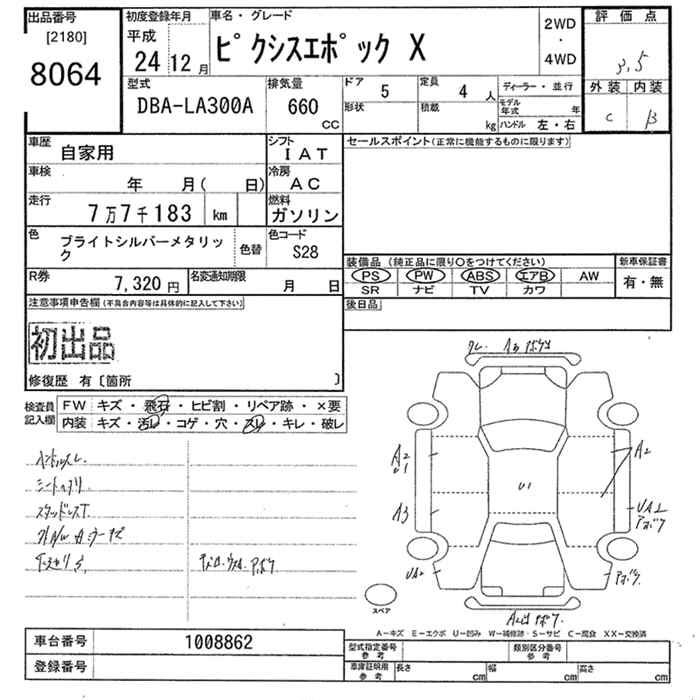 出品番号
[2180]
8064
初度登録年月
平成
24 12 月
車名・グレード
ピクシスエポック X
2WD
・
4WD
評価点
3.5
外装 内装
C B
型式
DBA-LA300A
排気量
660
CC
ドア 5
形状
定員 4 人
積載 kg
ディーラー・並行
モデル年式 年
ハンドル 左・右
車歴
自家用
シフト
IAT
車検
年 月( 日)
冷房
AC
走行
7万7千183 km
燃料
ガソリン
色
ブライトシルバーメタリック
色替
色コード
S28
R券
7,320 円
名変通知期限
月 日
セールスポイント(正常に機能するものに限ります)
装備品(純正品に限り○をつけてください)
PS PW ABS エアB AW
SR ナビ TV カワ
新車保証書
有・無
後日品
注意事項申告欄(不具合内容等は具体的に記入して下さい)
初出品
修復歴 有〔箇所 〕
検査員
記入欄
FW キズ・飛石・ヒビ割・リペア跡・×要
内装 キズ・汚レ・コゲ・穴・スレ・キレ・破レ
A2
U1
A3
UA2
U1
A2
スペア
A-キズ E-エクボ U-凹み W-補修跡・S-サビ C-腐食 XX-交換済
車台番号
1008862
登録番号
型式指定番号
参考
類別区分番号
参考
車庫証明用
参考
長さ cm 幅 cm 高さ cm